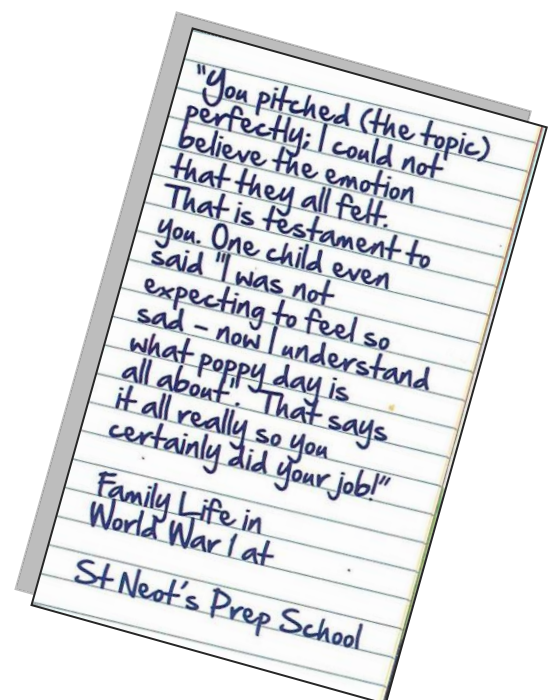 "You pitched (the topic)
perfectly; I could not
believe the emotion
that they all felt.
That is testament to
you. One child even
said "I was not
expecting to feel so
sad - now I understand
what poppy day is
all about". That says
it all really so you
certainly did your job!"
Family Life in
World War 1 at
St Neot's Prep School